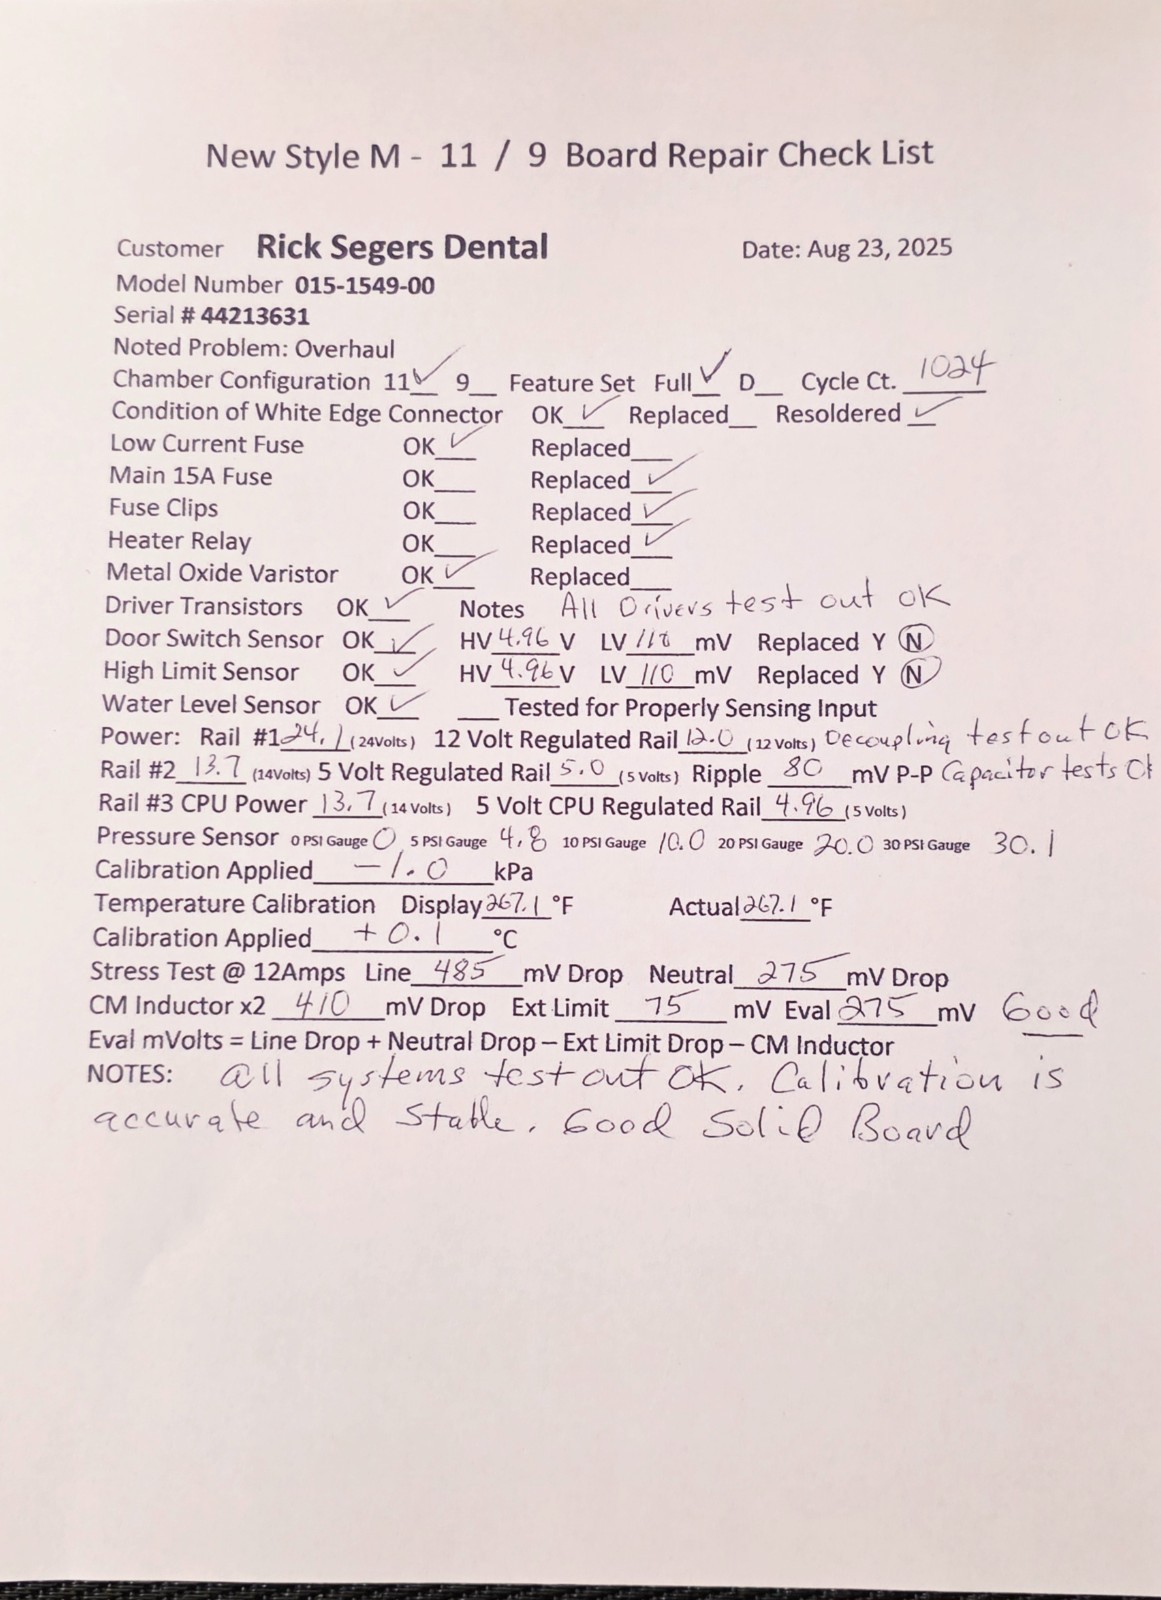 New Style M - 11 / 9 Board Repair Check List
Customer Rick Segers Dental Date: Aug 23, 2025
Model Number 015-1549-00
Serial # 44213631
Noted Problem: Overhaul
Chamber Configuration 11✓ 9__ Feature Set Full✓ D__ Cycle Ct. 1024
Condition of White Edge Connector OK ✓ Replaced__ Resoldered ✓
Low Current Fuse OK ✓ Replaced___
Main 15A Fuse OK___ Replaced ✓
Fuse Clips OK___ Replaced ✓
Heater Relay OK___ Replaced ✓
Metal Oxide Varistor OK ✓ Replaced___
Driver Transistors OK ✓ Notes All Drivers test out OK
Door Switch Sensor OK ✓ HV 4.96 V LV 118 mV Replaced Y N
High Limit Sensor OK ✓ HV 4.96 V LV 110 mV Replaced Y N
Water Level Sensor OK ✓ ___ Tested for Properly Sensing Input
Power: Rail #1 24.1 (24Volts) 12 Volt Regulated Rail 12.0 (12 Volts) Decoupling test out OK
Rail #2 13.7 (14Volts) 5 Volt Regulated Rail 5.0 (5 Volts) Ripple 80 mV P-P Capacitor tests OK
Rail #3 CPU Power 13.7 (14 Volts) 5 Volt CPU Regulated Rail 4.96 (5 Volts)
Pressure Sensor 0 PSI Gauge 0 5 PSI Gauge 4.8 10 PSI Gauge 10.0 20 PSI Gauge 20.0 30 PSI Gauge 30.1
Calibration Applied -1.0 kPa
Temperature Calibration Display 267.1 °F Actual 267.1 °F
Calibration Applied +0.1 °C
Stress Test @ 12Amps Line 485 mV Drop Neutral 275 mV Drop
CM Inductor x2 410 mV Drop Ext Limit 75 mV Eval 275 mV Good
Eval mVolts = Line Drop + Neutral Drop – Ext Limit Drop – CM Inductor
NOTES: All systems test out OK. Calibration is
accurate and stable. Good Solid Board